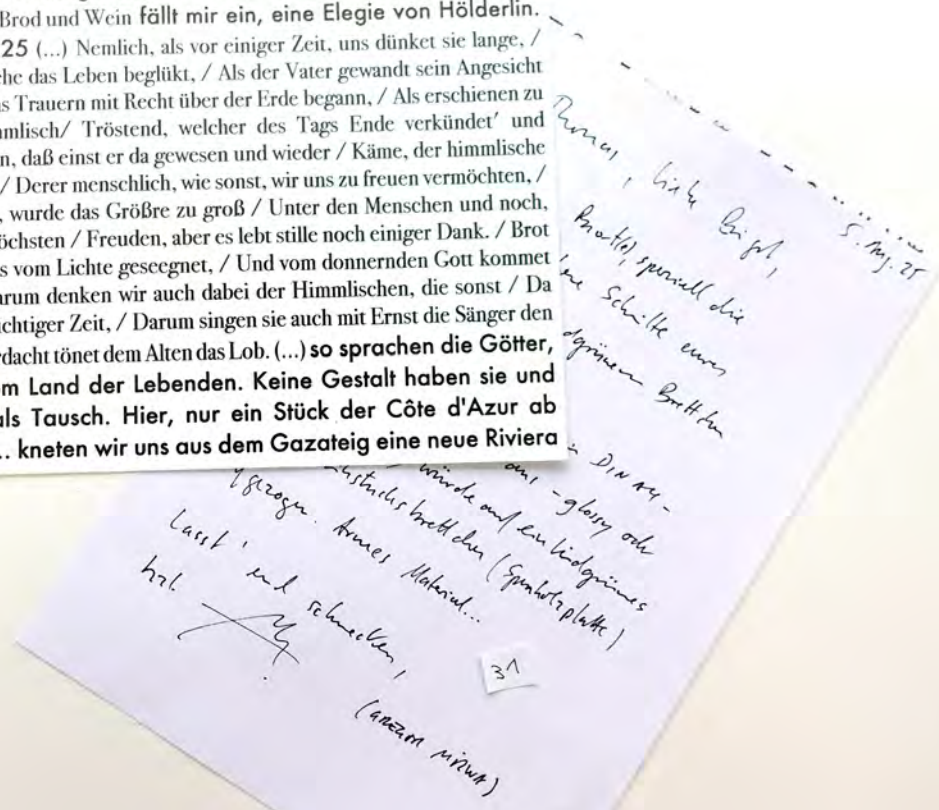 Brod und Wein fällt mir ein, eine Elegie von Hölderlin.
25 (...) Nemlich, als vor einiger Zeit, uns dünket sie lange, /
che das Leben beglükt, / Als der Vater gewandt sein Angesicht
s Trauern mit Recht über der Erde begann, / Als erschienen zu
mlisch/ Tröstend, welcher des Tags Ende verkündet' und
n, daß einst er da gewesen und wieder / Käme, der himmlische
/ Derer menschlich, wie sonst, wir uns zu freuen vermöchten, /
, wurde das Größre zu groß / Unter den Menschen und noch,
öchsten / Freuden, aber es lebt stille noch einiger Dank. / Brot
s vom Lichte geseegnet, / Und vom donnernden Gott kommet
arum denken wir auch dabei der Himmlischen, die sonst / Da
ichtiger Zeit, / Darum singen sie auch mit Ernst die Sänger den
dacht tönet dem Alten das Lob. (...) so sprachen die Götter,
m Land der Lebenden. Keine Gestalt haben sie und
als Tausch. Hier, nur ein Stück der Côte d'Azur ab
.. kneten wir uns aus dem Gazateig eine neue Riviera
5. Aug. 25
Thomas, liebe Birgit,
speziell die
Schnitte eines
dgrünen Brettchen
in DIN A4-
aus - glossy oder
würde auf ein lindgrünes
hstücksbrettchen (Spanholzplatte)
gezogen. Armes Material...
Lasst' und schmecken,
hrzl.
31
(GREGOR MIRWA)